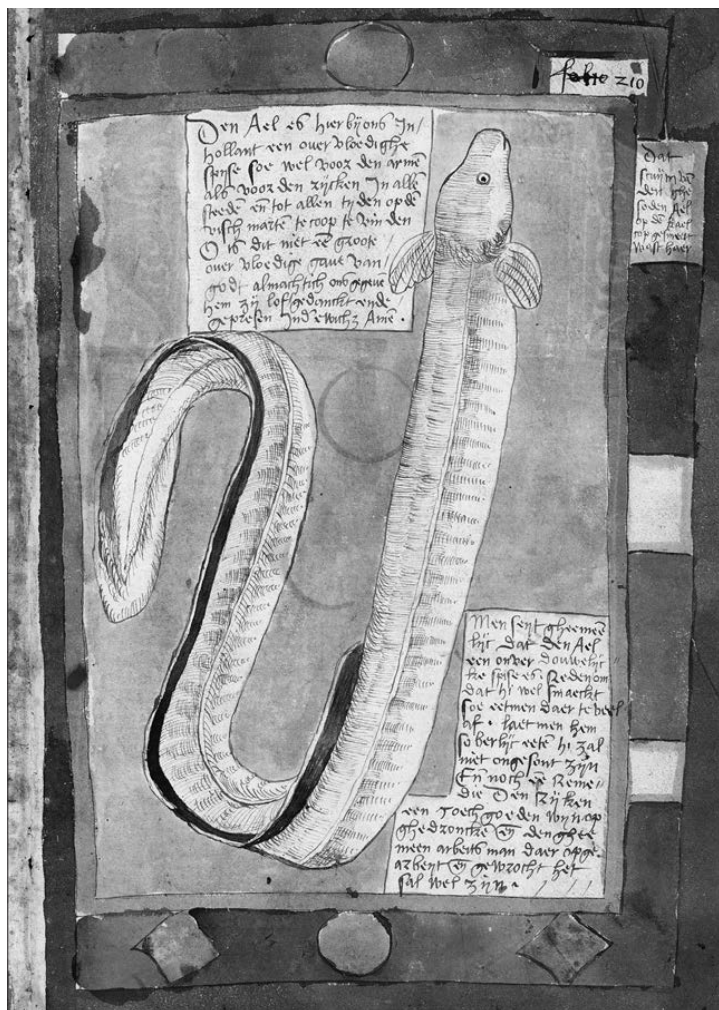 folio 210
Den Ael es hier bij ons In
hollant een overvloedighe
spise soe wel voor den armē
als voor den rijcken In alle
steedē eñ tot allen tijden op dē
visch marct te coop te vinden
O is dit niet eē groote
overvloedige gave van
godt almachtich ons gegevē
hem zij lof gedanckt ende
gepresen Ind ewich3 Amē.
Dat
den ghe
soden Ael
op dē kael
cop gesmeert
wast haer
Men seijt ghemeē
lijc dat den Ael
een onver douwelijc
ke spise es. Reden om
dat hi wel smaeckt
soe eetmen daer te veel
af. laetmen hem
soberlijc eetē hi zal
niet ongesont zijn
Eñ noch eē Reme
die Den Rijcken
een toech goeden wijn op
ghedroncke eñ den ghee
meen arbeits man daer op ge
arbeut eñ gewrocht het
sal wel zijn.